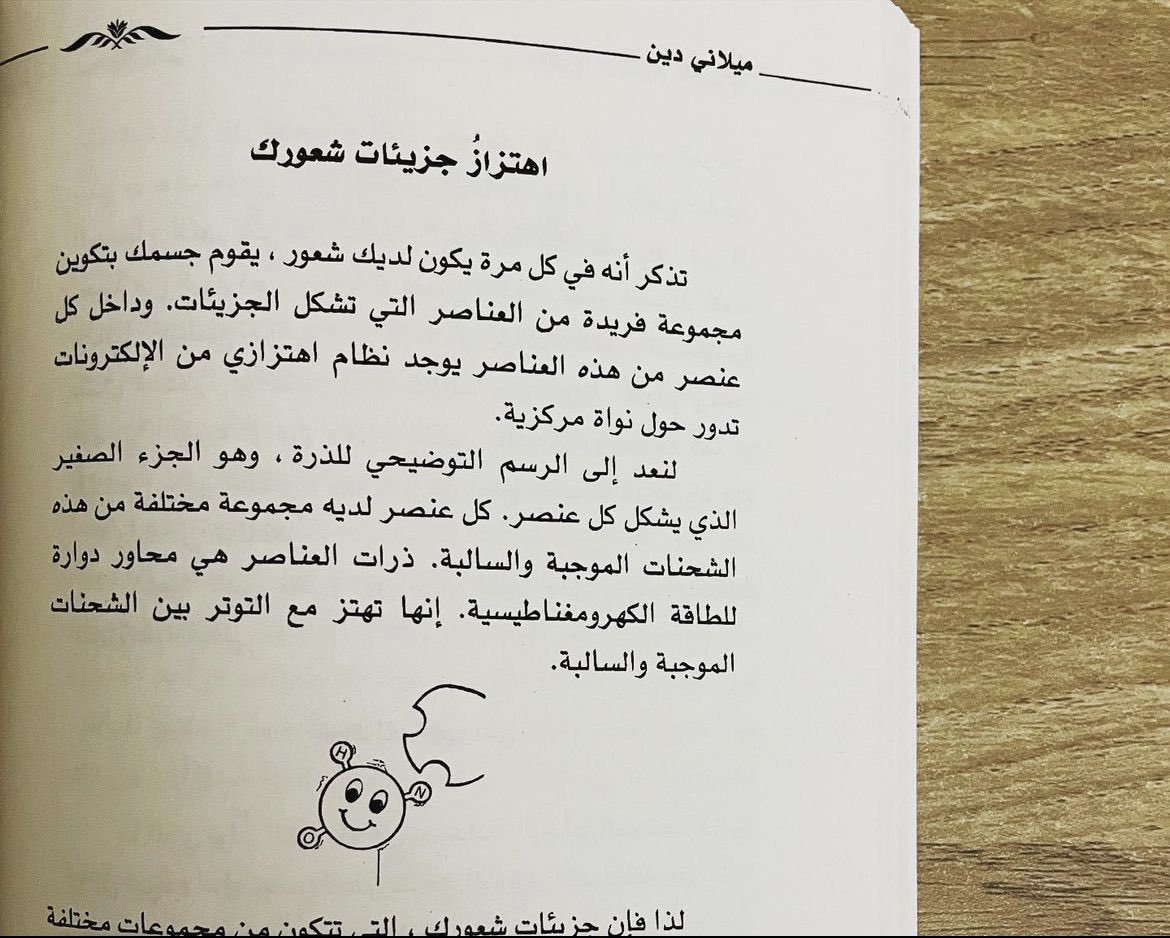 ميلاني دين
اهتزازُ جزيئات شعورك
تذكر أنه في كل مرة يكون لديك شعور ، يقوم جسمك بتكوين
مجموعة فريدة من العناصر التي تشكل الجزيئات. وداخل كل
عنصر من هذه العناصر يوجد نظام اهتزازي من الإلكترونات
تدور حول نواة مركزية.
لنعد إلى الرسم التوضيحي للذرة ، وهو الجزء الصغير
الذي يشكل كل عنصر. كل عنصر لديه مجموعة مختلفة من هذه
الشحنات الموجبة والسالبة. ذرات العناصر هي محاور دوارة
للطاقة الكهرومغناطيسية. إنها تهتز مع التوتر بين الشحنات
الموجبة والسالبة.
H
N
O
لذا فإن جزيئات شعورك ، التي تتكون من مجموعات مختلفة